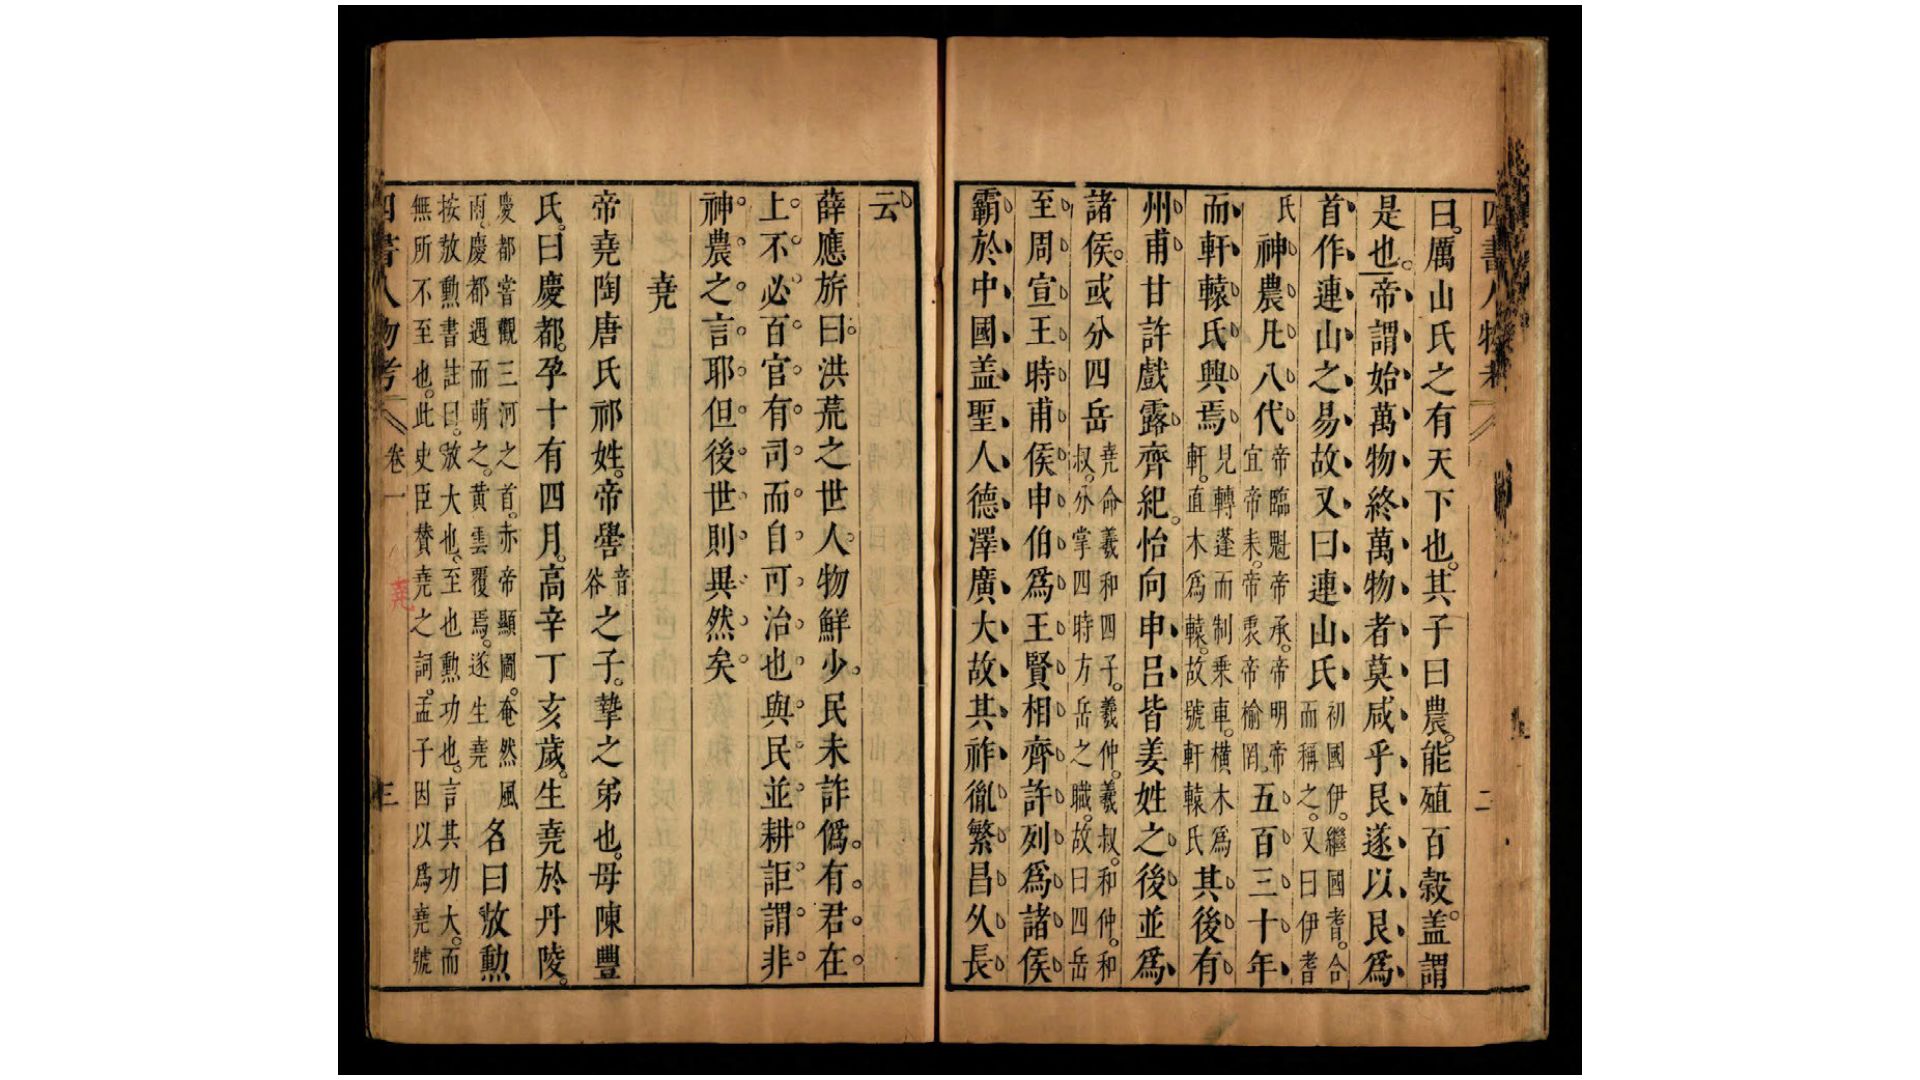 四書人物考 二
曰。厲山氏之有天下也。其子曰農。能殖百穀。盖謂
是也。帝謂始萬物終萬物者莫咸乎艮遂以艮爲
首作連山之易故又曰連山氏
初國伊。繼國耆。合
而稱之。又曰伊耆
氏
神農凡八代
帝臨魁帝承。帝明帝
宜帝耒。帝帝榆罔。
五百三十年
而軒轅氏興焉
見轉蓬而制乗車。橫木爲
軒。直木爲轅。故號軒轅氏
其後有
州甫甘許戲露齊紀。怡向申呂皆姜姓之後並爲
諸侯。或分四岳
堯命羲和四子。羲仲。羲叔。和仲。和
叔。分掌四時方岳之職。故曰四岳
至周宣王時甫侯申伯爲王賢相齊許列爲諸侯
霸於中國盖聖人德澤廣大故其祚胤繁昌久長
云
薛應旂曰。洪荒之世人。物鮮少。民未詐僞。有。君。在。
上。不。必。百。官。有。司。而。自。可。治。也。與。民。並。耕。詎。謂。非。
神。農。之。言。耶。但。後。世。則。異。然。矣。
堯
帝堯陶唐氏祁姓。帝嚳
音
谷
之子。摯之弟也。母陳豐
氏。曰慶都。孕十有四月。高辛丁亥歲。生堯於丹陵。
慶都嘗觀三河之首。赤帝顯圖。奄然風
雨。慶都遇而萌之。黃雲覆焉。遂生堯
名曰放勳
按放勳書註曰。放大也。至也勳功也。言其功大。而
無所不至也。此史臣贊堯之詞。孟子因以爲堯號
四書人物考 卷一 三
堯